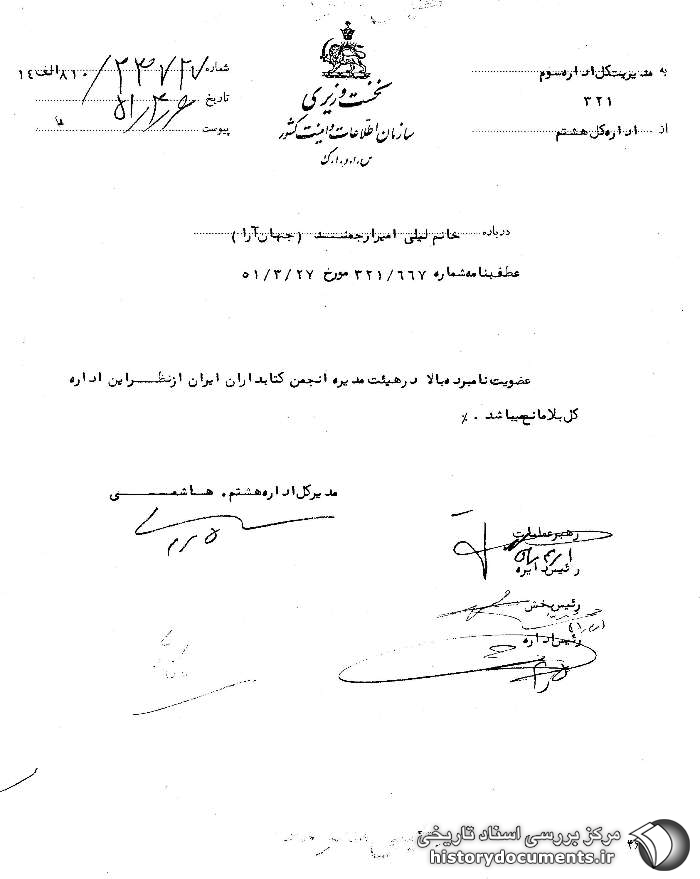 به مدیریت کل اداره سوم
۳۲۱
از اداره کل هشتم
نخست وزیری
سازمان اطلاعات و امنیت کشور
س.ا.و.ا.ک
شماره ۲۳۷۲۷ / ۸۱۰ الف ۱٤
تاریخ
پیوست
درباره خانم لیلی امیرارجمند (جهان آرا)
عطف بنامه شماره ۳۲۱/٦٦۷ مورخ ۵۱/۳/۲۷
عضویت نامبرده بالا در هیئت مدیره انجمن کتابداران ایران از نظر این اداره
کل بلامانع میباشد . ٪
مدیر کل اداره هشتم . هاشمی
رهبر عملیات
رئیس دایره
رئیس بخش
رئیس اداره
مرکز بررسی اسناد تاریخی
historydocuments.ir